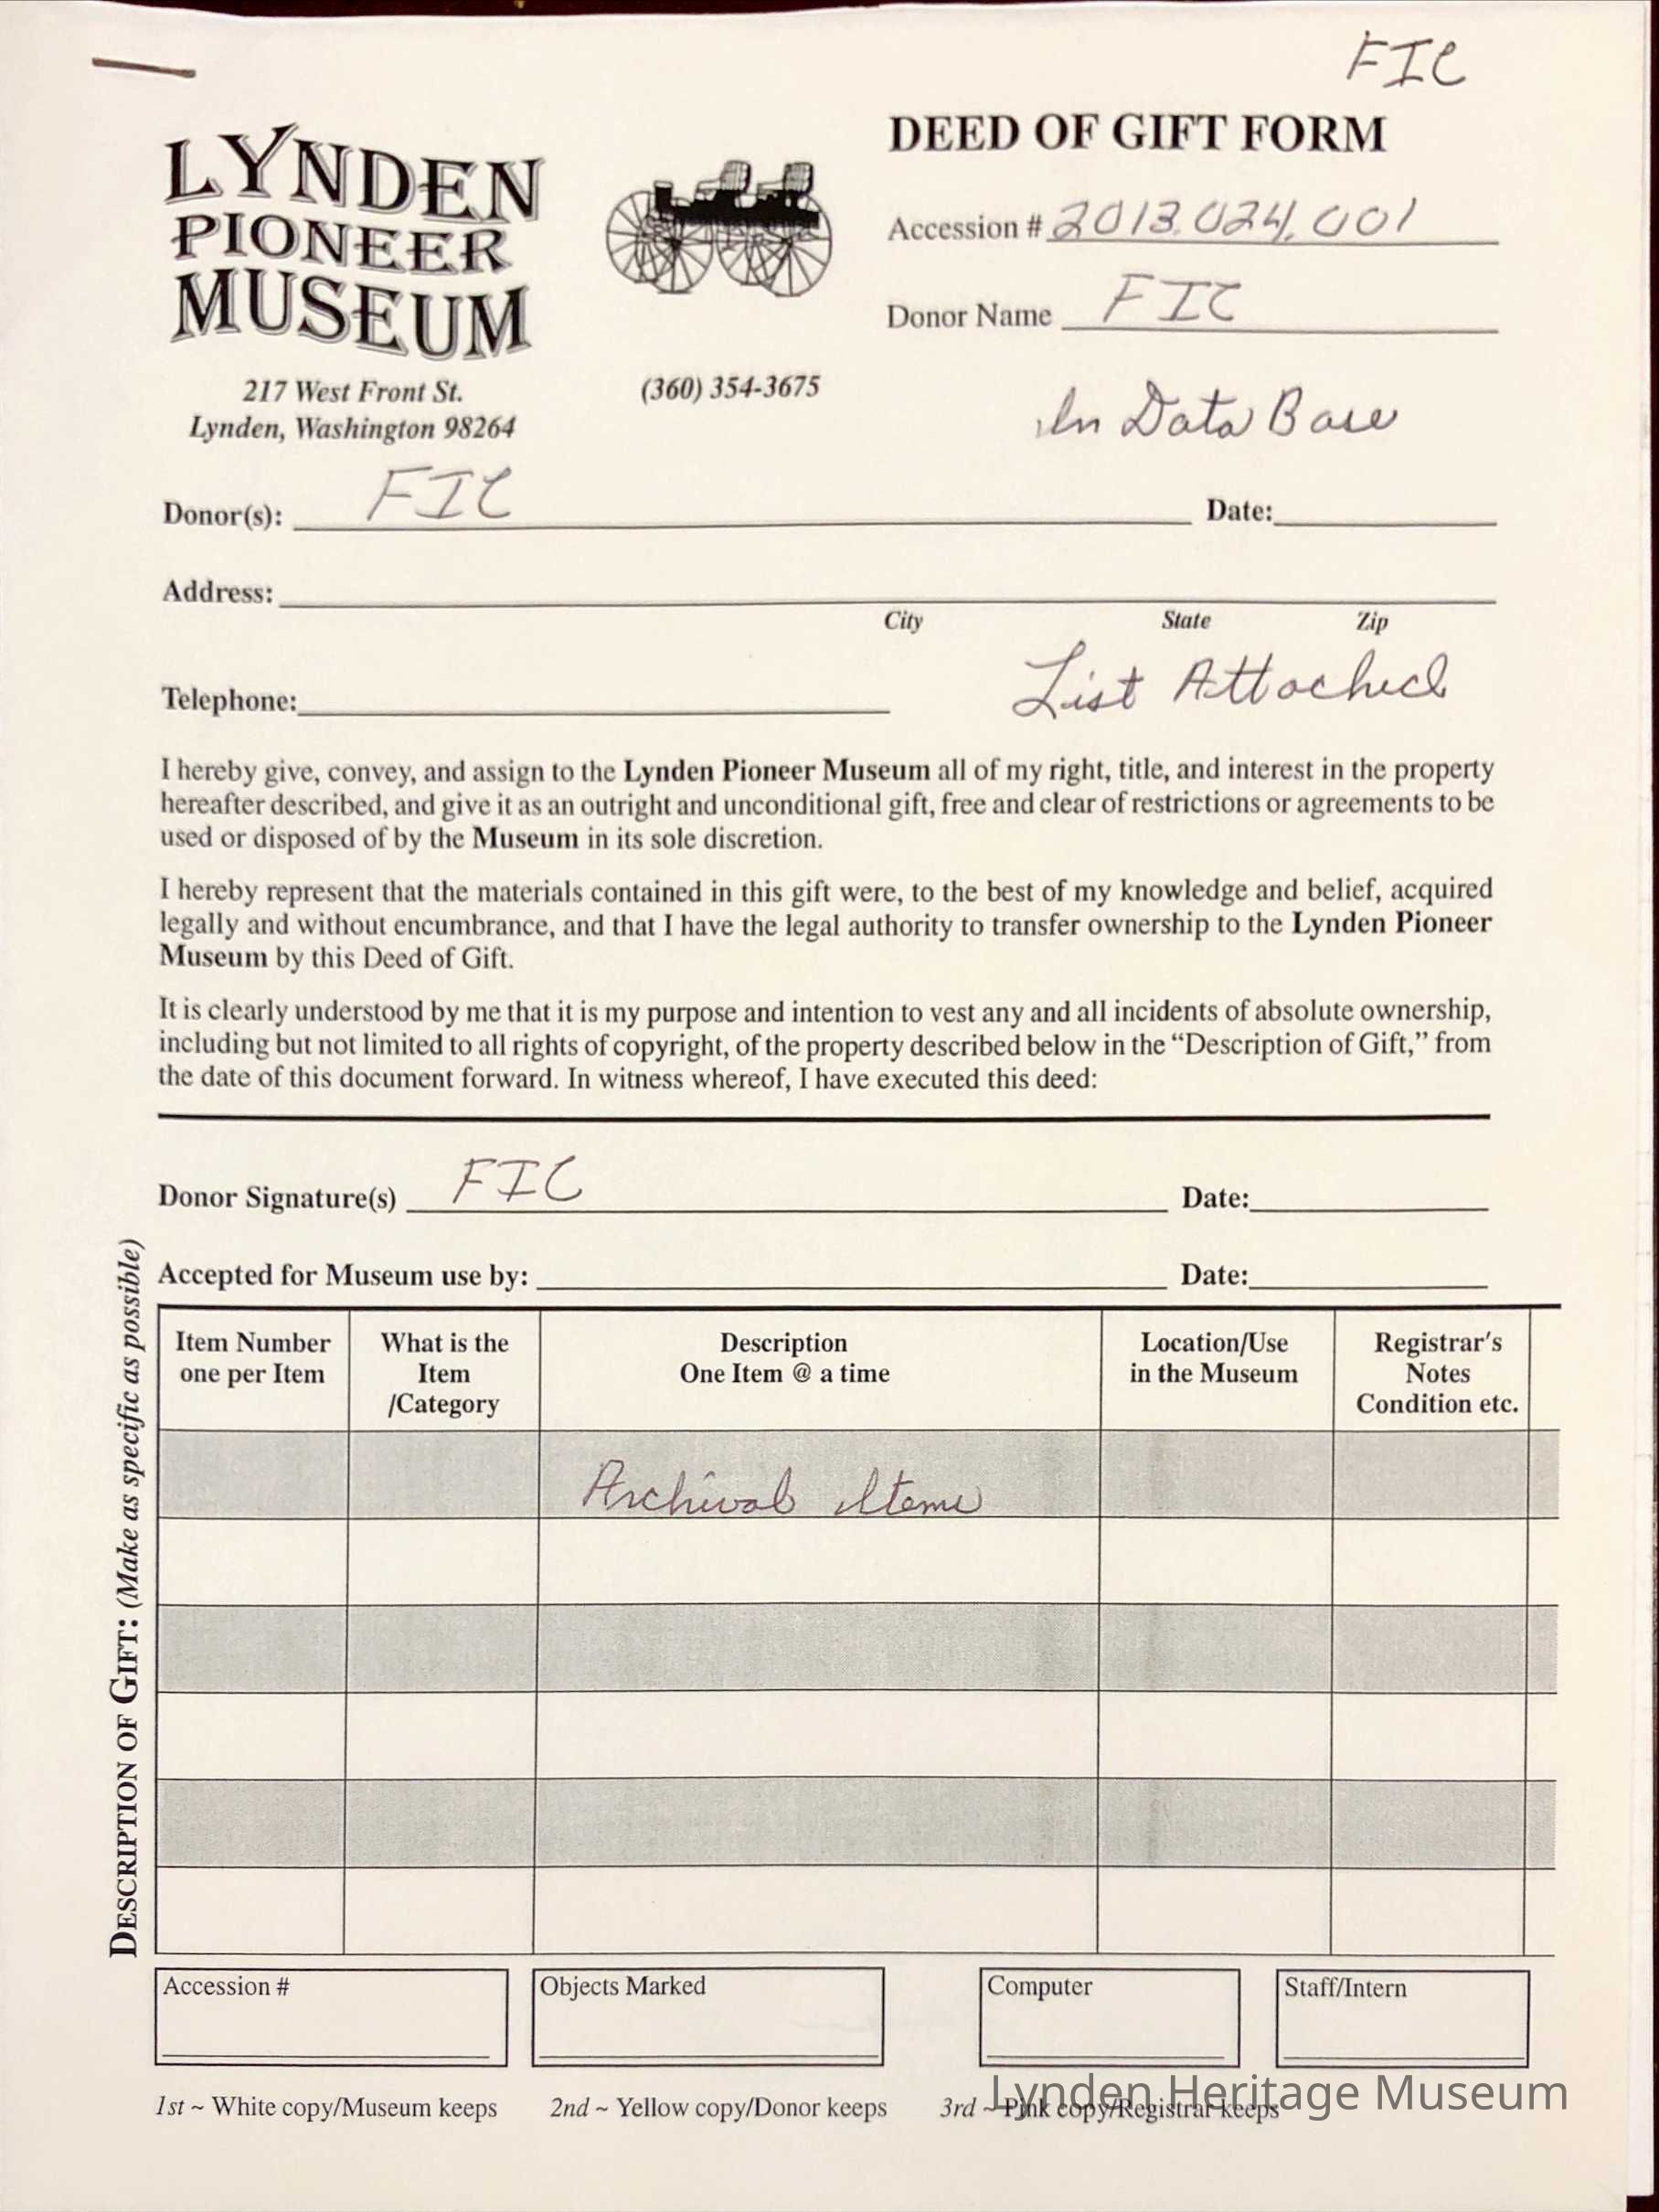 FIC
DEED OF GIFT FORM
LYNDEN
PIONEER
MUSEUM
Accession # 2013.024.001
Donor Name FIC
217 West Front St.
Lynden, Washington 98264
(360) 354-3675
In Data Base
Donor(s): FIC Date:
Address:
City State Zip
List Attached
Telephone:
I hereby give, convey, and assign to the Lynden Pioneer Museum all of my right, title, and interest in the property
hereafter described, and give it as an outright and unconditional gift, free and clear of restrictions or agreements to be
used or disposed of by the Museum in its sole discretion.
I hereby represent that the materials contained in this gift were, to the best of my knowledge and belief, acquired
legally and without encumbrance, and that I have the legal authority to transfer ownership to the Lynden Pioneer
Museum by this Deed of Gift.
It is clearly understood by me that it is my purpose and intention to vest any and all incidents of absolute ownership,
including but not limited to all rights of copyright, of the property described below in the “Description of Gift,” from
the date of this document forward. In witness whereof, I have executed this deed:
Donor Signature(s) FIC Date:
Accepted for Museum use by: Date:
DESCRIPTION OF GIFT: (Make as specific as possible)
Item Number
one per Item
What is the
Item
/Category
Description
One Item @ a time
Location/Use
in the Museum
Registrar's
Notes
Condition etc.
Archival Items
Accession #
Objects Marked
Computer
Staff/Intern
1st ~ White copy/Museum keeps 2nd ~ Yellow copy/Donor keeps 3rd ~ Pink copy/Registrar keeps
Lynden Heritage Museum